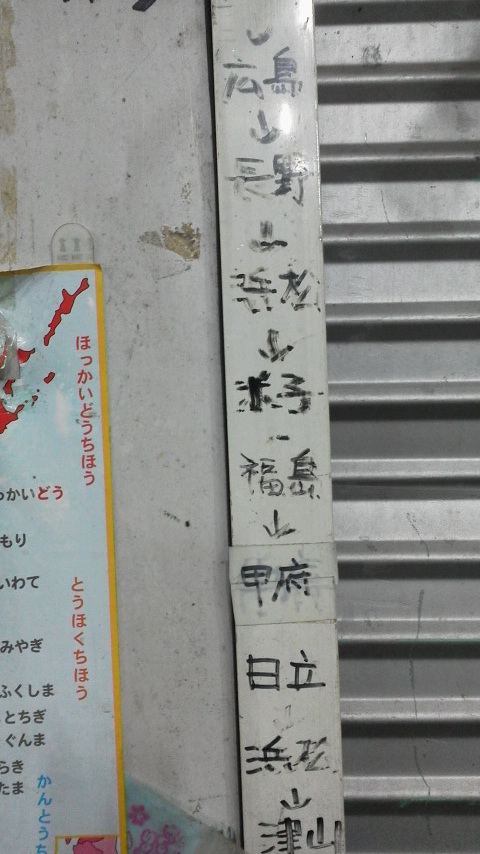 広島
↓
長野
↓
浜松
↓
米子
福島
↓
甲府
日立
浜松
↓
津山
ほっかいどうちほう
っかいどう
もり
いわて
とうほくちほう
みやぎ
ふくしま
とちぎ
ぐんま
らき
たま
かんとうち